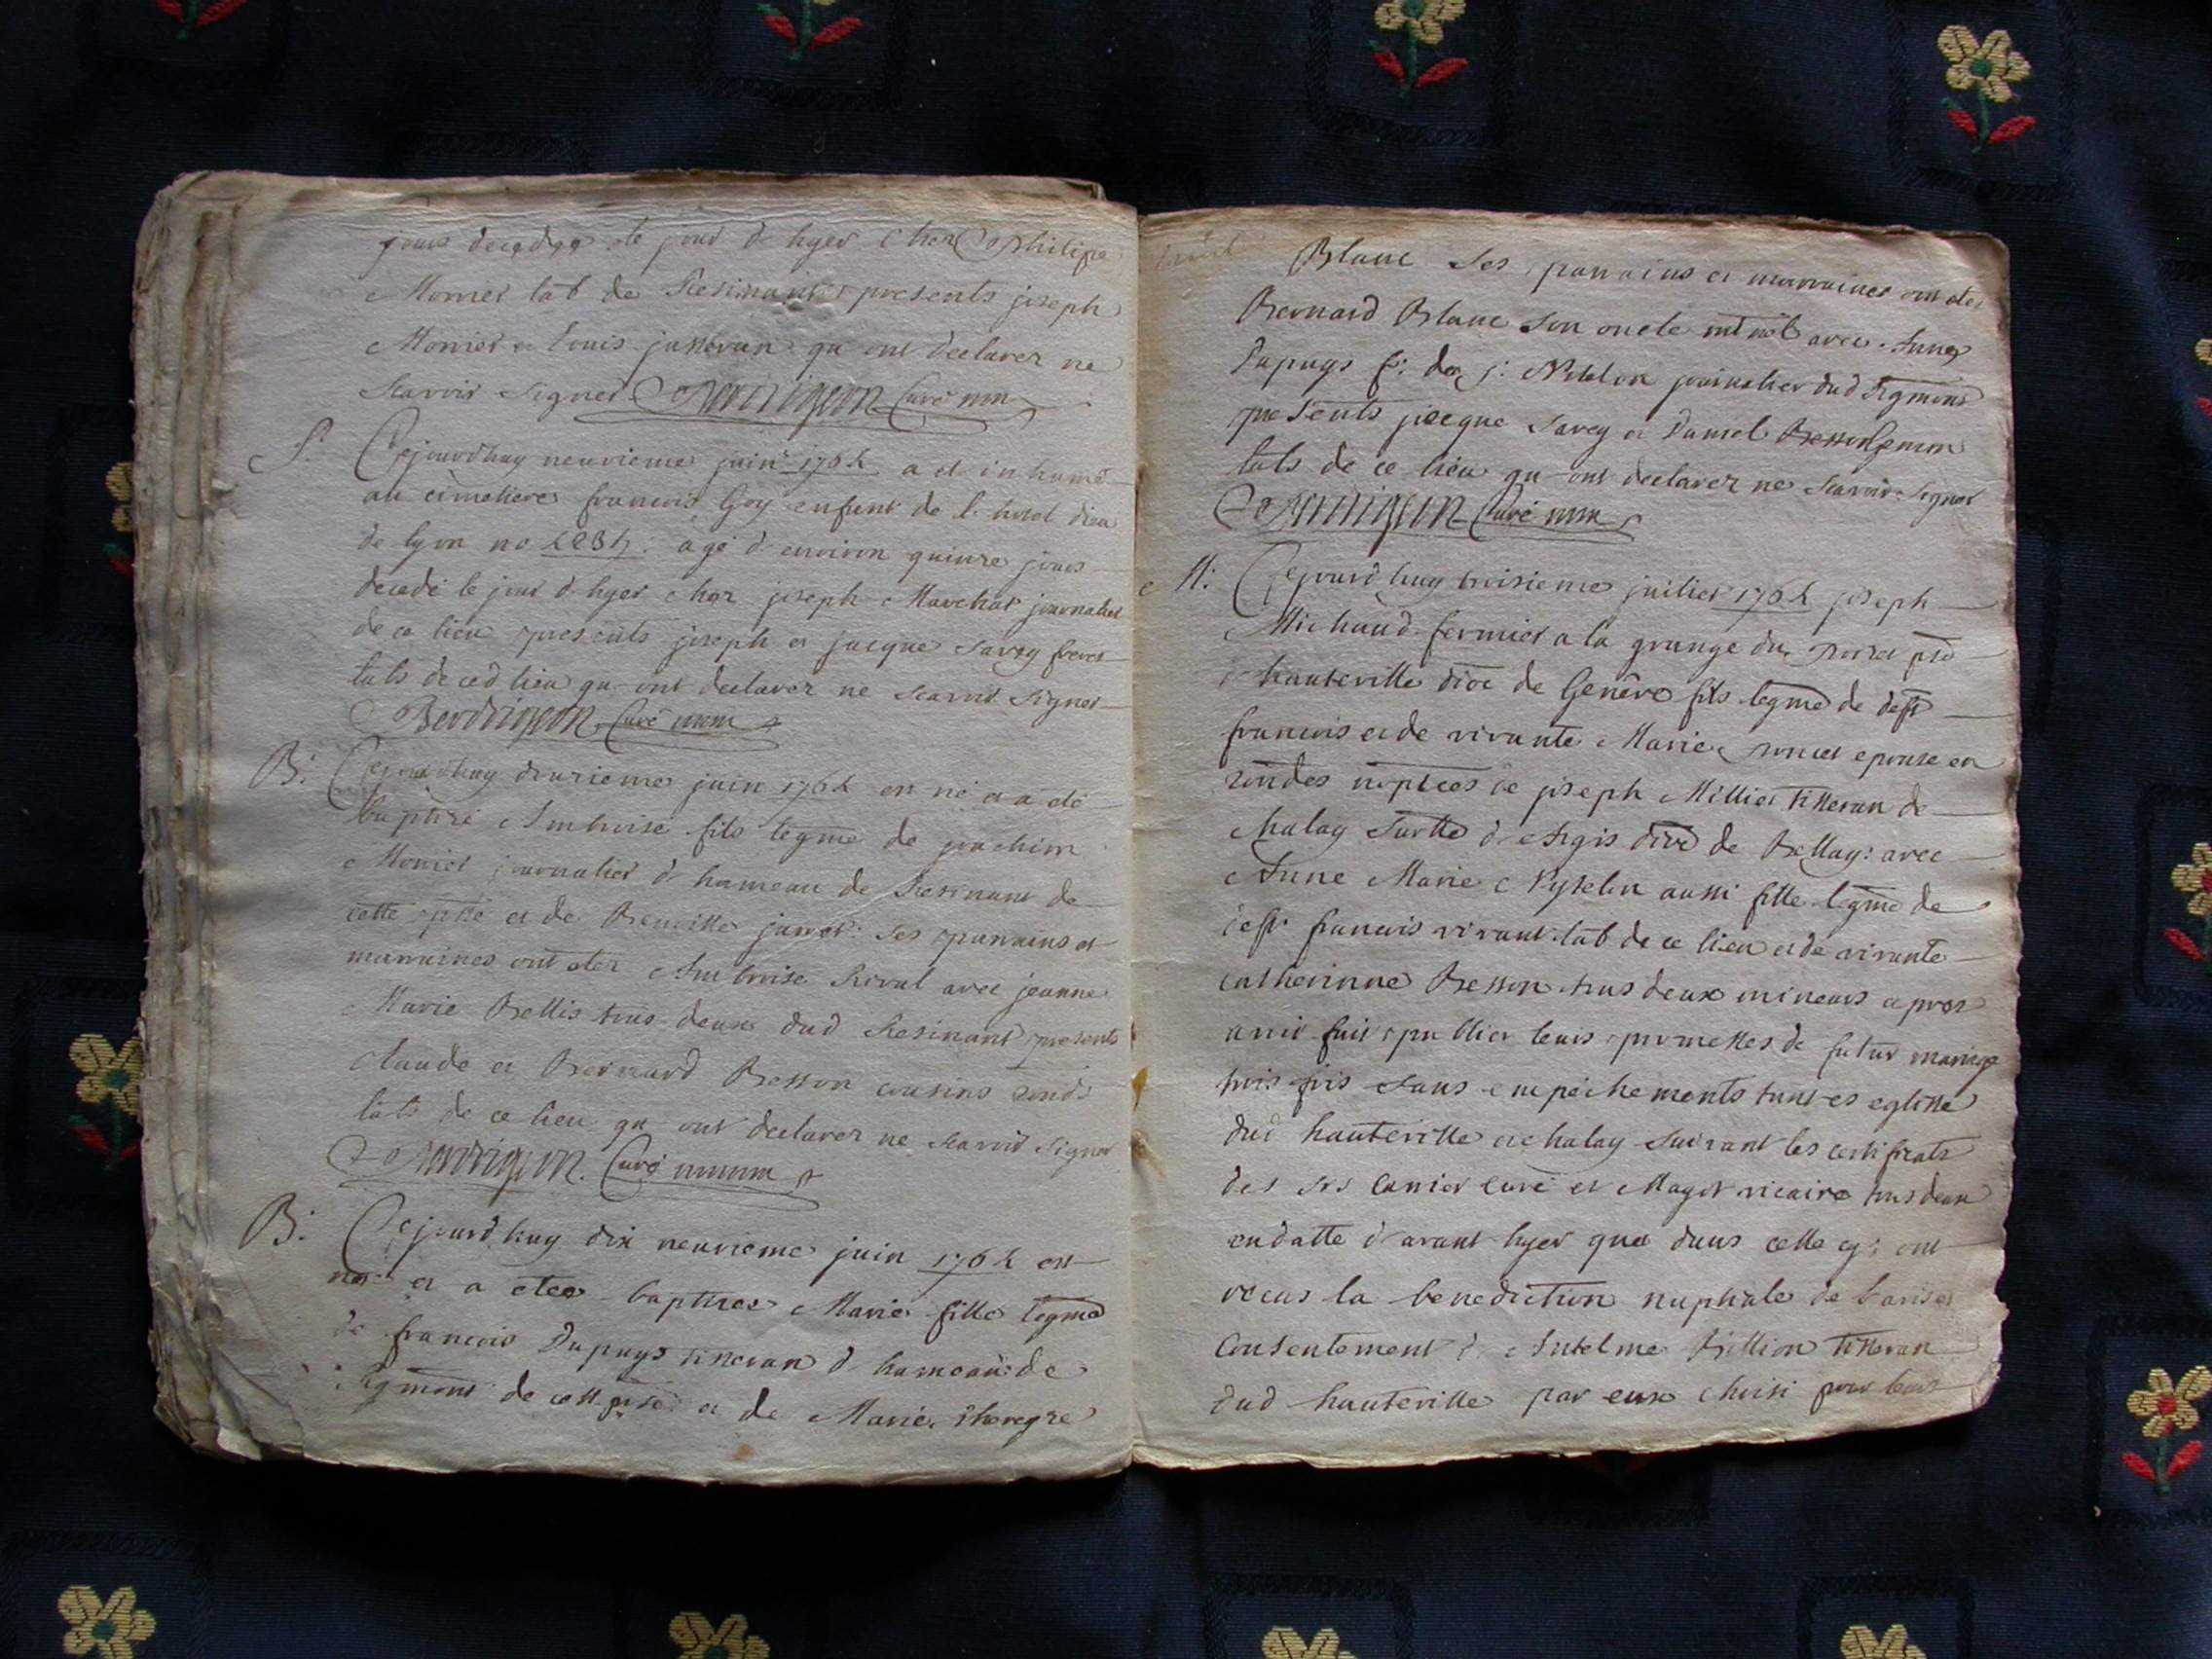 jours decedee le jour d hyer chez philipe
Monier lab de Resinant presents joseph
Monier et Louis jusseran qu ont declarer ne
scavoir signer Berdrigeon Curé mm
S: Cejourdhuy neuvieme juin 1764 a et inhumé
au cimetiere francois Goy enfent de l hotel dieu
de lyon no agé d environ quinze jours
decedé le jour d hyer chez joseph Marchat journalier
de ce lieu presents joseph et jacque Savey freres
labs de ced lieu qu ont declarer ne scavoir signer
Berdrigeon Curé mm
B: Cejourdhuy douzieme juin 1764 en né et a eté
baptisé Ambroise fils legme de joachim
Monier journalier d hameau de Resinant de
cette psse et de Benoitte ses parrains et
marraines ont eter Ambroise Rival avec jeanne
Marie Bellis tous deux dud Resinant presents
claude et Bernard Besson cousins
labs de ce lieu qu ont declarer ne scavoir signer
Berdrigeon Curé mm
B: Cejourdhuy dix neuvieme juin 1764 est
née et a etee baptisee Marie fille legme
de francois Dupuys tisseran d hameau de
Sigmont de cett psse et de Marie theregze
Blanc ses parrains et marraines ont eter
Bernard Blanc son oncle avec Anne
Dupuys f: de j: journalier dud Sigmont
presents jacque Savey et Daniel
labs de ce lieu qu ont declarer ne scavoir signer
Berdrigeon Curé mm
M: Cejourdhuy troisieme juillet 1764 joseph
Michaud fermier a la grange du
d hauteville dioc de Genève fils legme de deft
francois et de vivante Marie poncet epouse en
nopces de joseph Millier tisseran de
chalay d Argis dioc de Bellay: avec
Anne Marie aussi fille legme de
deft francois vivant lab de ce lieu et de vivante
catherinne Besson tous deux mineurs apres
avoir fait publier leurs promesses de futur mariage
trois fois sans empechements tant es eglisse
dud hauteville et chalay suivant les certificats
des srs curé et Magot vicaire tous deux
en datte d avant hyer que dans cette eg: ont
receus la benediction nuptiale de l avis et
consentement d Antelme Billion tisseran
dud hauteville par eux choisi pour leur